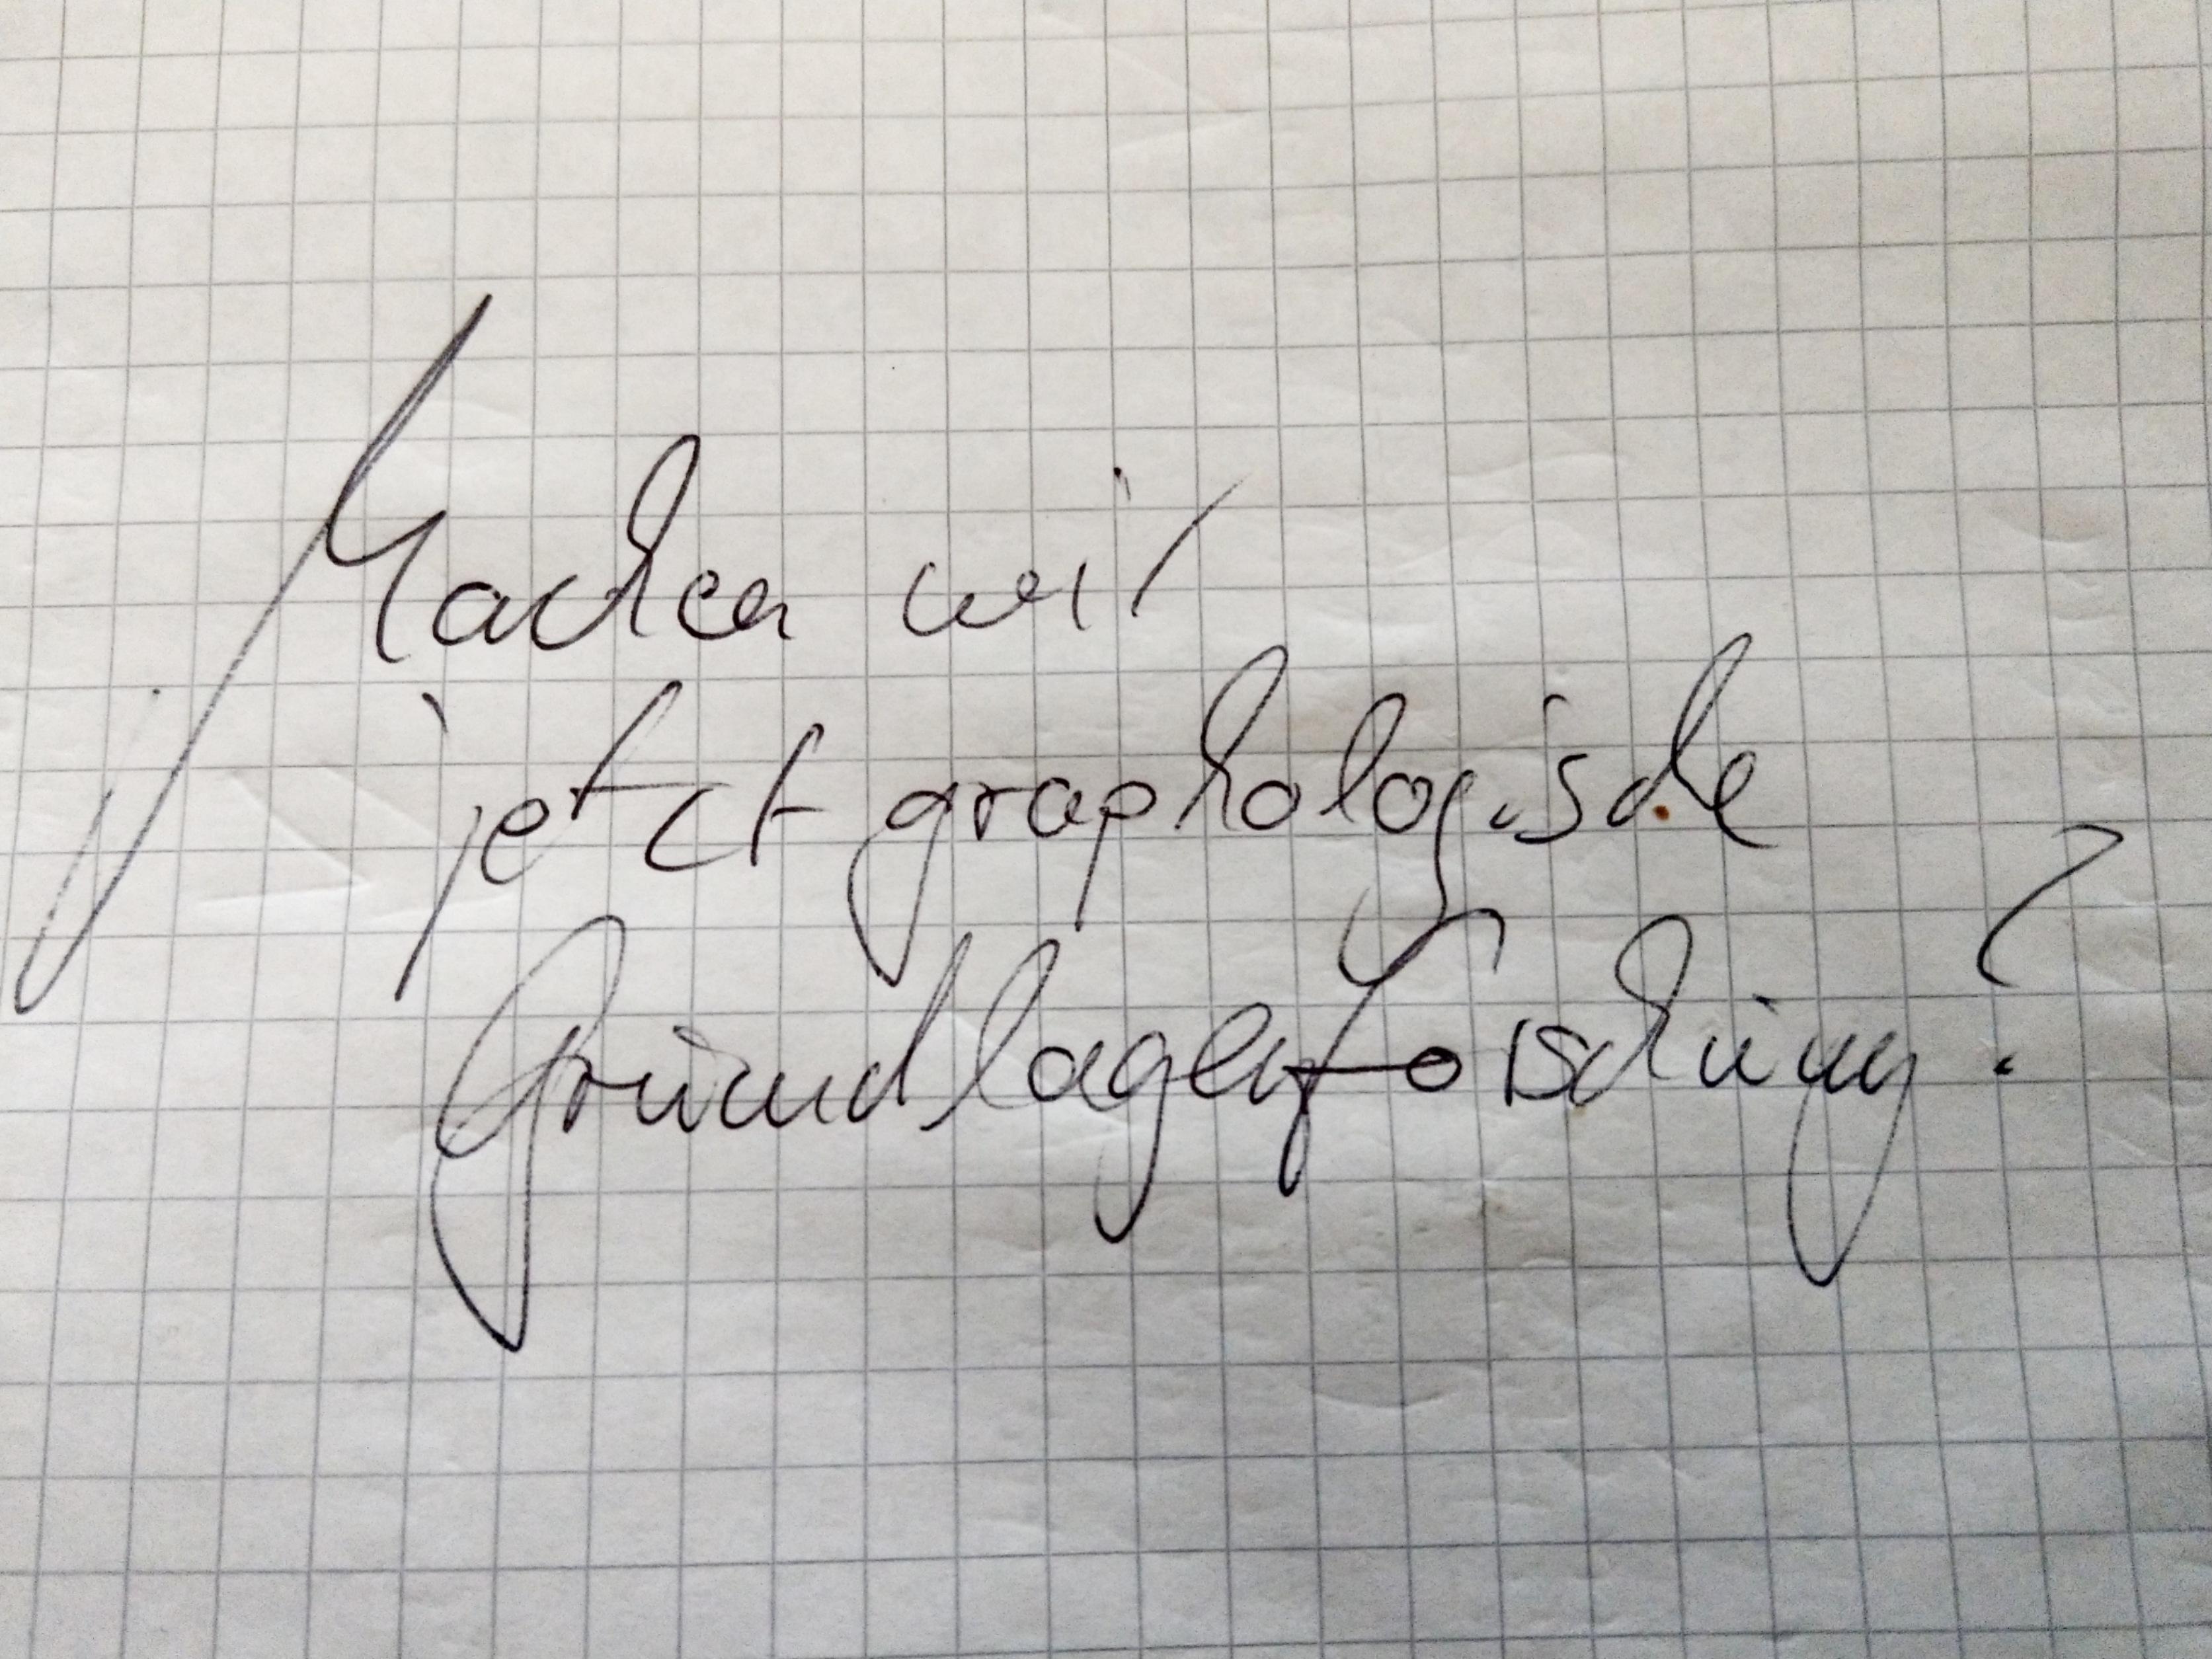 Machen wir
jetzt graphologische
Grundlagenforschung?